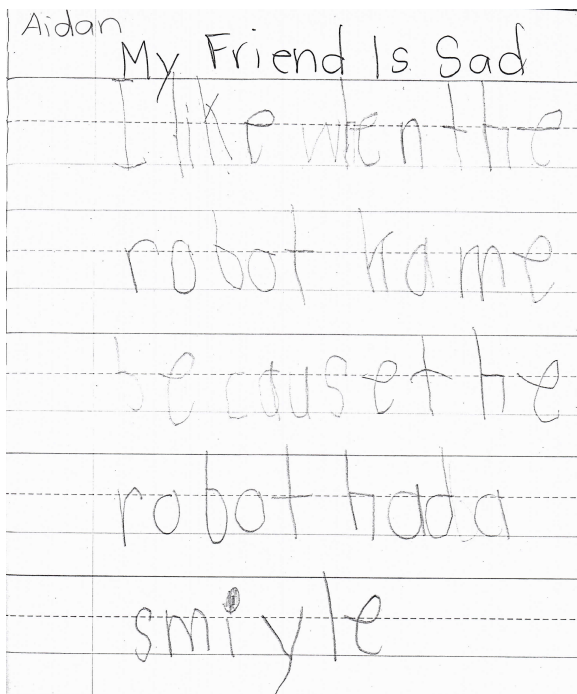 Aidan
My Friend Is Sad
I like when the
robot kame
because the
robot had a
smiyle